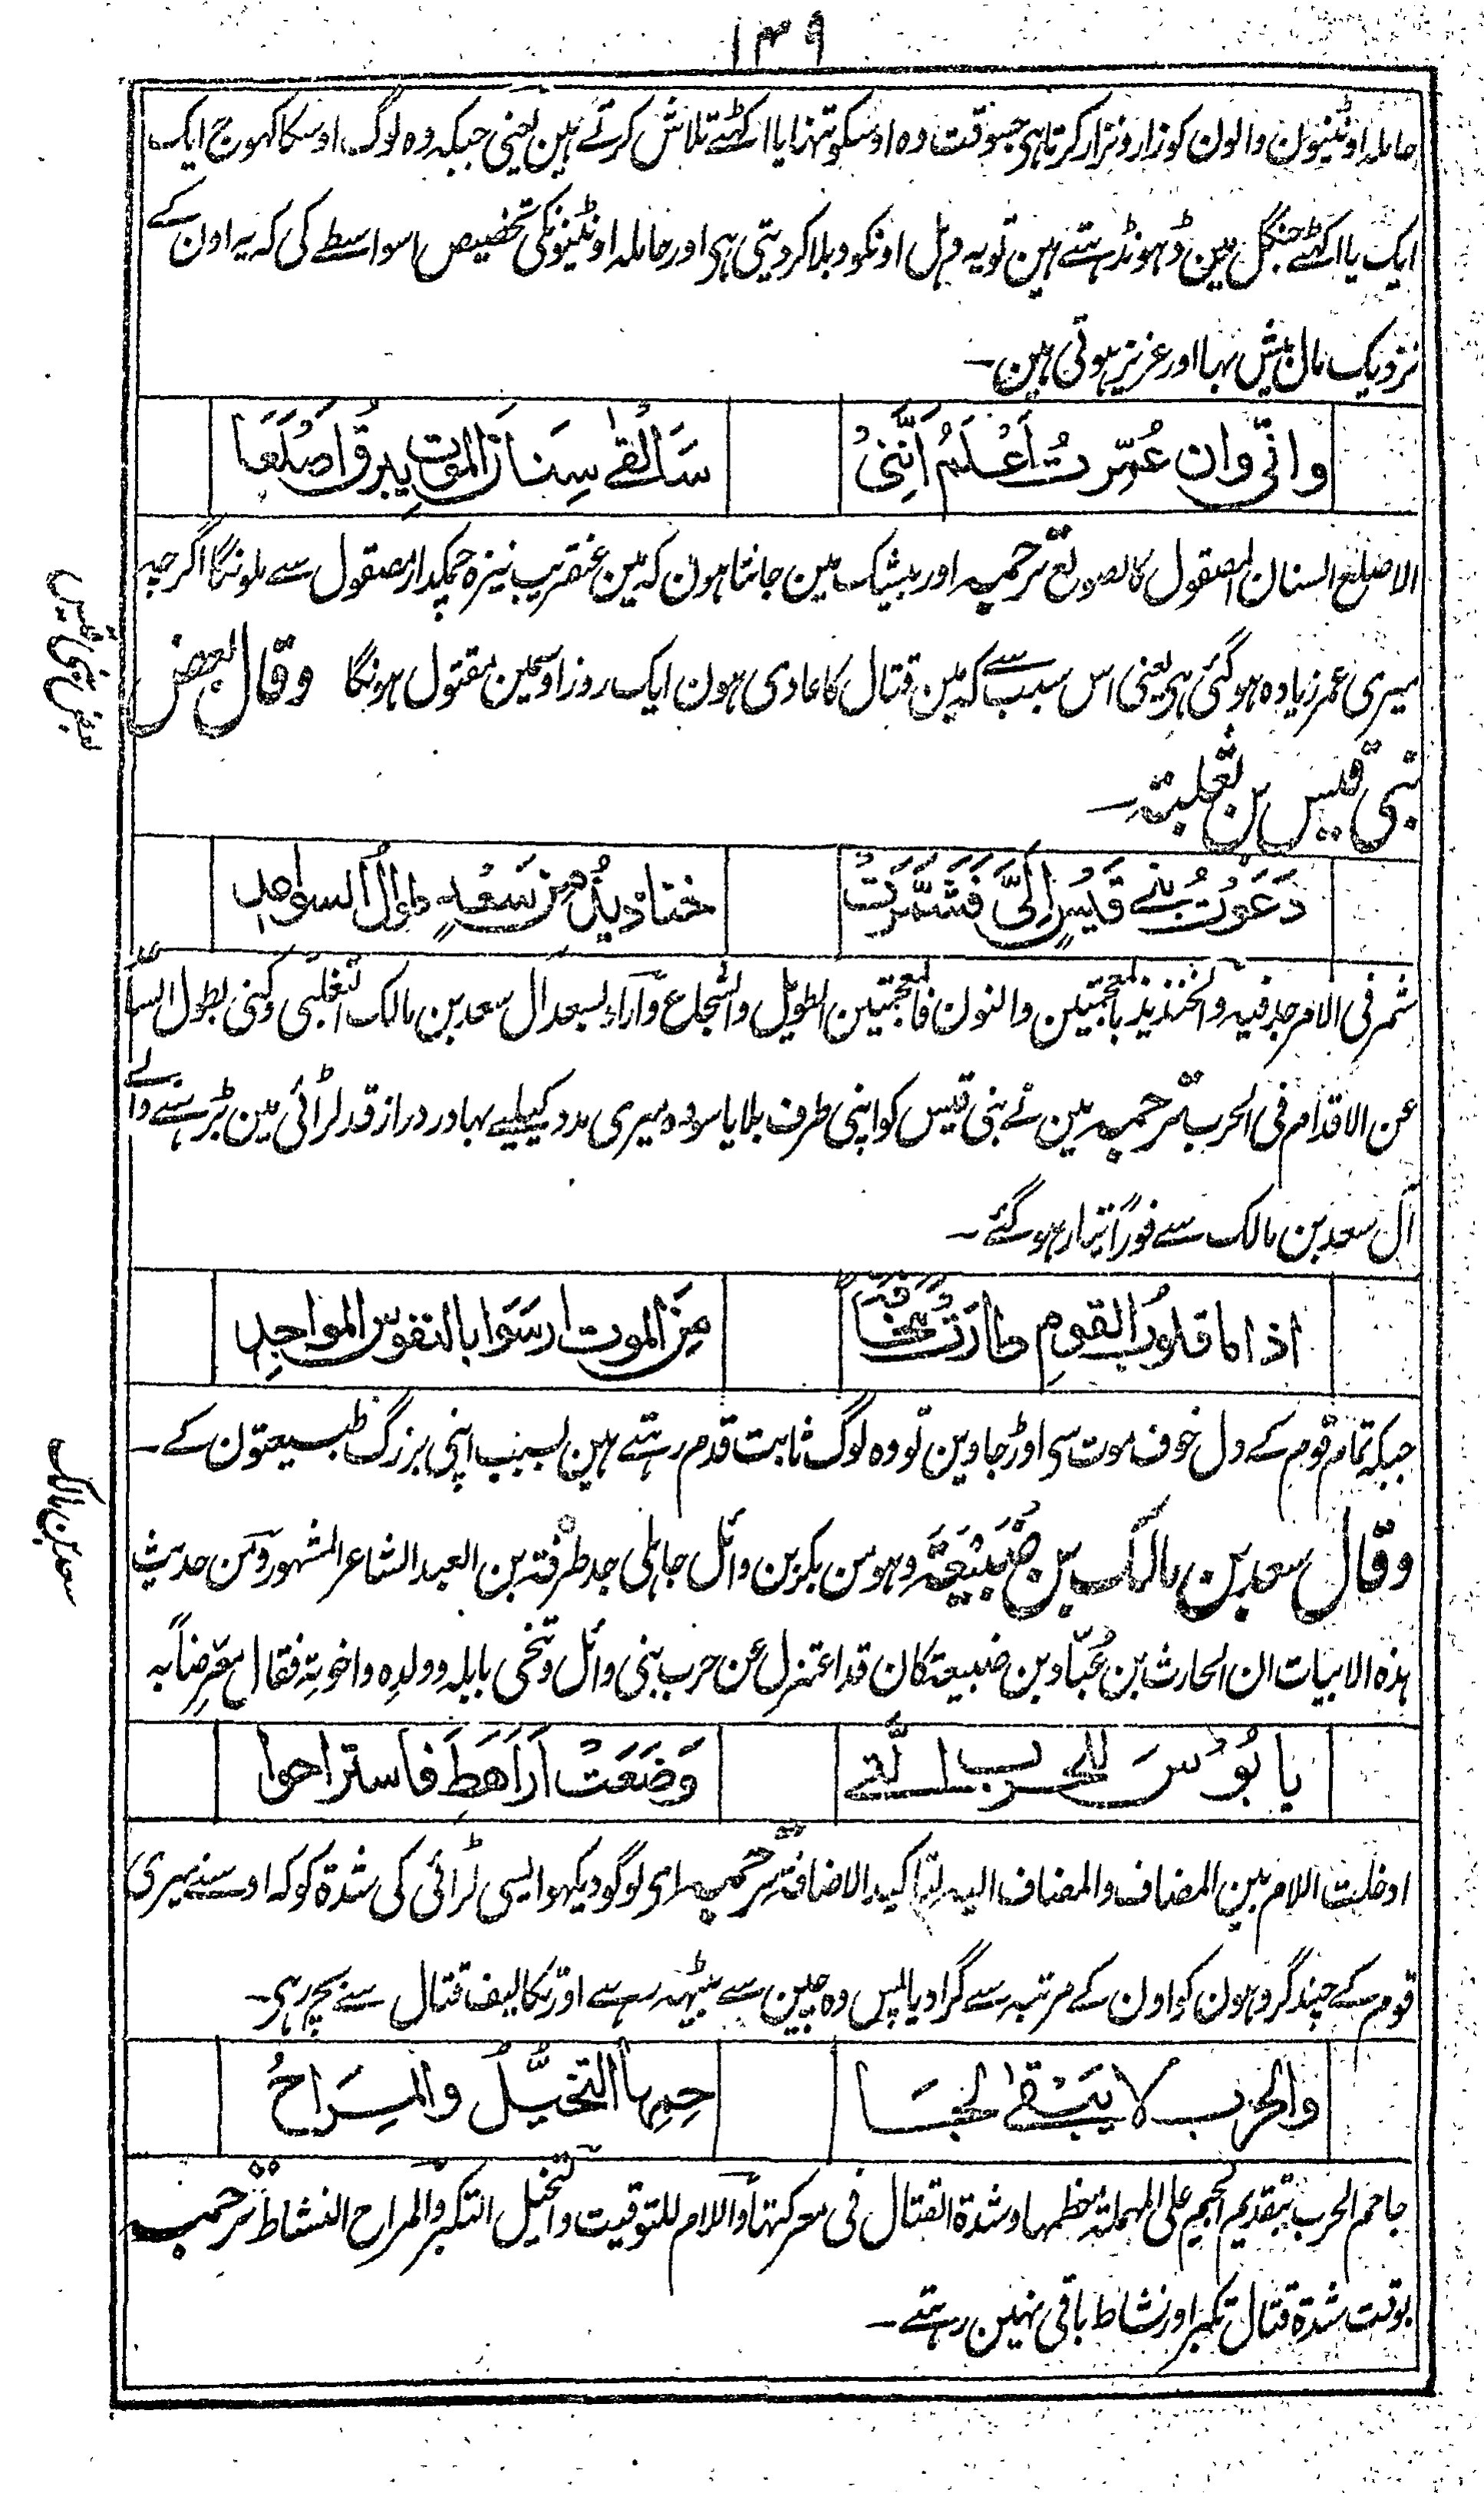 ۱۴۹
حاملہ اونٹنیون والون کو زار و نزار کرتا ہی جسوقت وہ اوسکو تنہا یا اکٹھے تلاش کرتے ہین یعنی جبکہ وہ لوگ اوسکا کھوج ایک
ایک یا اکٹھے جنگل مین ڈھونڈہتے ہین تو یہ اونکو دبلا کر دیتی ہی اور حاملہ اونٹنیونکی تخصیص اسواسطے کی کہ یہ اون کے
نزدیک مال بیش بہا اور عزیز ہوتی ہین۔
وانّی وان عُمِّرتُ اَعْلَمُ اَنَّنِیْ
سَاَلْقٰے سِنَانَ الموتِ یبرقُ اَصْلَعَا
الاصلع السنان المصقول کالصولع ترجمہ اور بیشک مین جانتا ہون کہ مین عنقریب نیزہ چمکدار مصقول سے ملونگا اگرچہ
میری عمر زیادہ ہو گئی ہی یعنی اس سبب سے کہ مین قتال کا عادی ہون ایک روز اوسمین مقتول ہونگا وقال بعض
بنی قیس بن ثعلبتہ۔
بعض بنی قیس
دَعَوْتُ بَنِے قَیْسٍ اِلَیَّ فَشَمَّرَتْ
خناذیذُ مِن سَعْدٍ طوالُ السواعِدِ
شمر فی الامر جد فیہ والخنذیذ بالمعجمتین والنون فالمعجمتین الطویل والشجاع واراد بسعد ال سعد بن مالک التغلبی وکنی بطول السا
عن الاقدام فی الحرب ترجمہ مین نے بنی قیس کو اپنی طرف بلایا سو وہ میری مدد کیلیے بہادر دراز قد لڑائی مین بڑہنے والے
آل سعد بن مالک سے فوراً تیار ہو گئے۔
اذا ما قلوبُ القومِ طارَتْ مخافَۃً
مِنَ الموت ارسَوا بالنفوس المواجِدِ
جبکہ تمام قوم کے دل خوف موت سی اوڑ جاوین تو وہ لوگ ثابت قدم رہتے ہین بسبب اپنی بزرگ طبیعتون کے۔
سعد بن مالک
وقال سعد بن مالک بن ضُبَیْعَۃَ وہو من بکر بن وائل جاہلی جد طرفۃ بن العبد الشاعر المشہور ومن حدیث
ہذہ الابیات ان الحارث بن عُبّاد بن ضبیعۃ کان قد اعتزل عن حرب بنی وائل وتنحی باہلہ وولدہ واخوتہ فقال معرضاً بہ
یا بُؤْسَ للحربِ الَّتے
وَضَعَتْ اَرَاھِطَ فاستراحوا
ادخلت اللام بین المضاف والمضاف الیہ لتاکید الاضافۃ ترجمہ ای لوگو دیکھو ایسی لڑائی کی شدۃ کو کہ اوسنے میری
قوم کے چند گروہون کو اون کے مرتبہ سے گرا دیا پس وہ چین سے بیٹھ رہے اور تکالیف قتال سے بچ رہی۔
والحرب لا یَبْقٰی لجَا
حِمِہا التخیُّلُ والمِرَاحُ
جاحم الحرب بتقدیم الجیم علی المہملۃ معظمہا وشدۃ القتال فی معرکتہا واللام للتوقیت والتخیل التکبر والمراح النشاط ترجمہ
بوقت شدۃ قتال تکبر اور نشاط باقی نہین رہتے۔